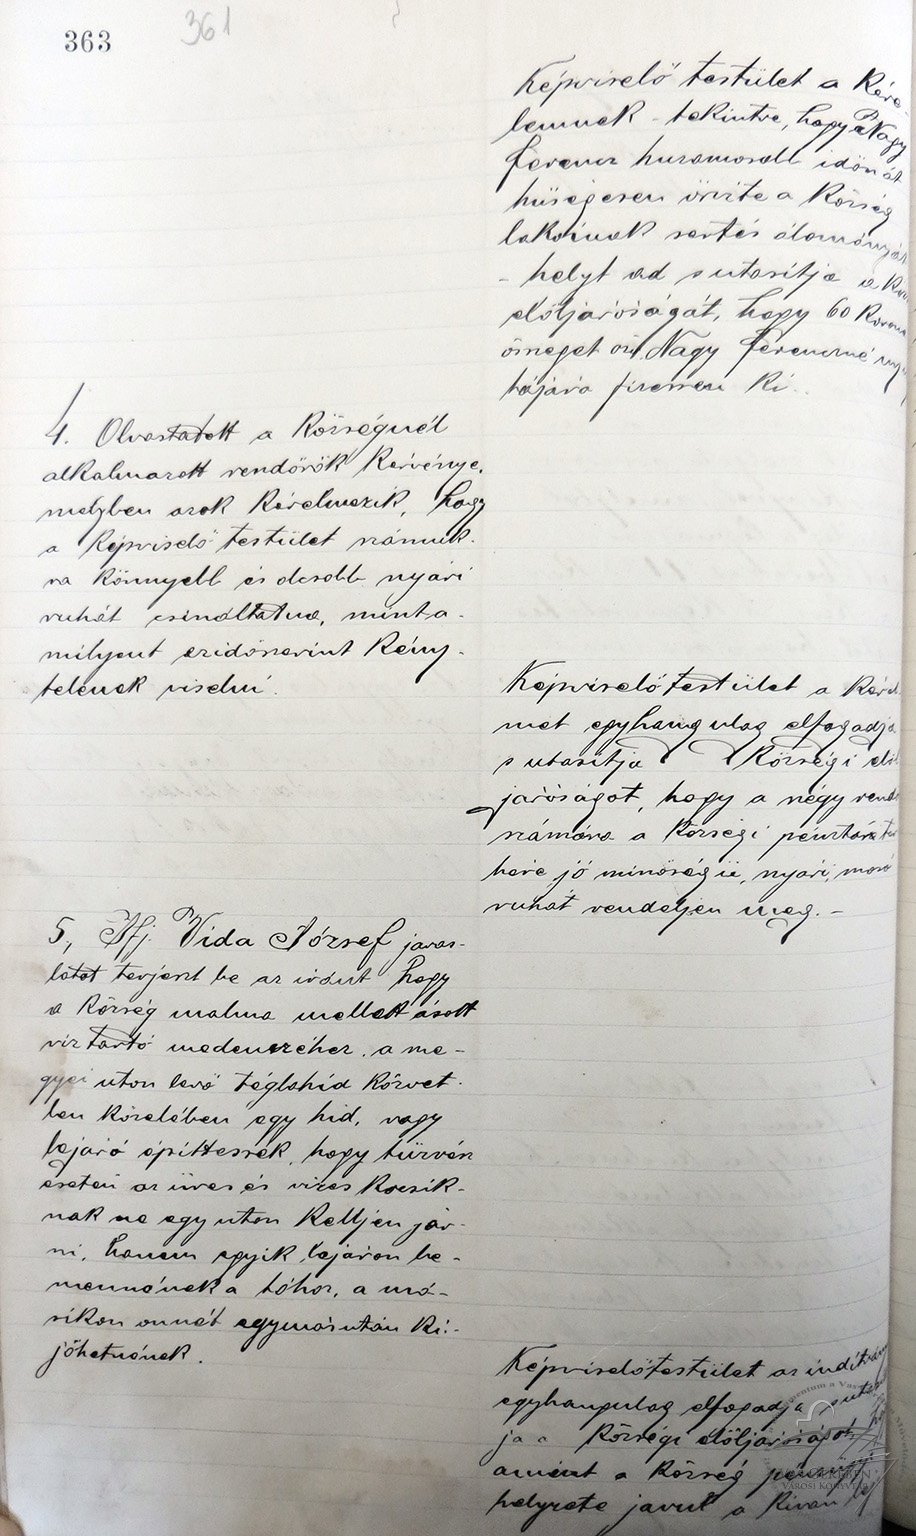 363
361
Képviselő testület a kére-
lemnek - tekintve, hogy Nagy
Ferencz huzamosabb időn át
hűségesen őrizte a község
lakóinak sertés állományát
- helyt ad s utasítja a
előljáróságát, hogy 60 korona
összeget özv. Nagy Ferenczné
tájára fizessen ki.
4. Olvastatott a községnél
alkalmazott rendőrök kérvénye,
melyben azok kérelmezik, hogy
a képviselő testület számuk-
ra könnyebb és olcsobb nyári
ruhát csináltatna, mint a-
milyent ezidőszerint kény-
telenek viselni.
Képviselőtestület a kérel
met egyhangulag elfogadja
s utasítja községi elől
járóságot, hogy a négy rend
számára a községi pénztár ter
here jó minőségü, nyári, mosó
ruhát rendeljen meg. -
5, Ifj. Vida József javas-
latot terjeszt be az iránt hogy
a község malma mellett ásott
viz tartó medenczéhez, a me-
gyei uton levő téglahid közvet-
len közelében egy hid, vagy
lejáró épittessék, hogy tüzvész
esetén az üres és vizes kocsik-
nak ne egy uton kelljen jár-
ni, hanem egyik lejáron be-
mennének a tóhoz, a má-
sikon onnét egymásután ki-
jöhetnének.
Képviselőtestület az inditvány
egyhangulag elfogadja s utasit
ja a községi előljáróságot, hogy
amént a község pénzügyi
helyzete javul a kivánt
VÁROSI KÖNYVTÁR